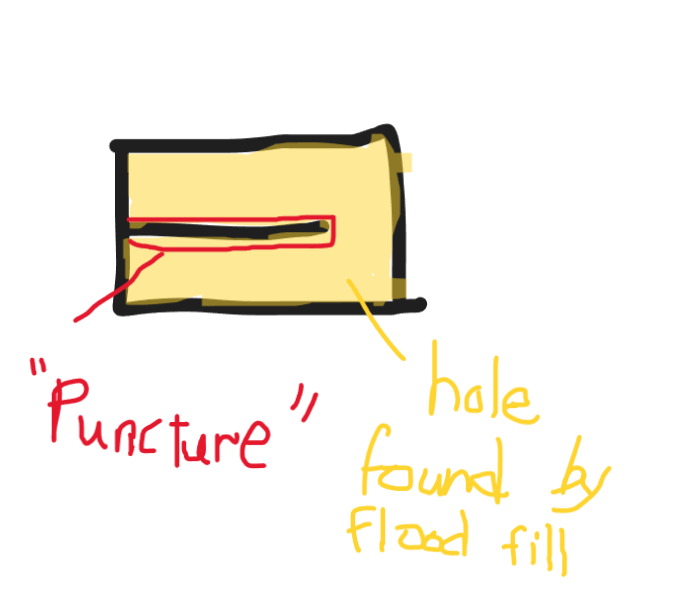 "Puncture"
hole
found by
flood fill